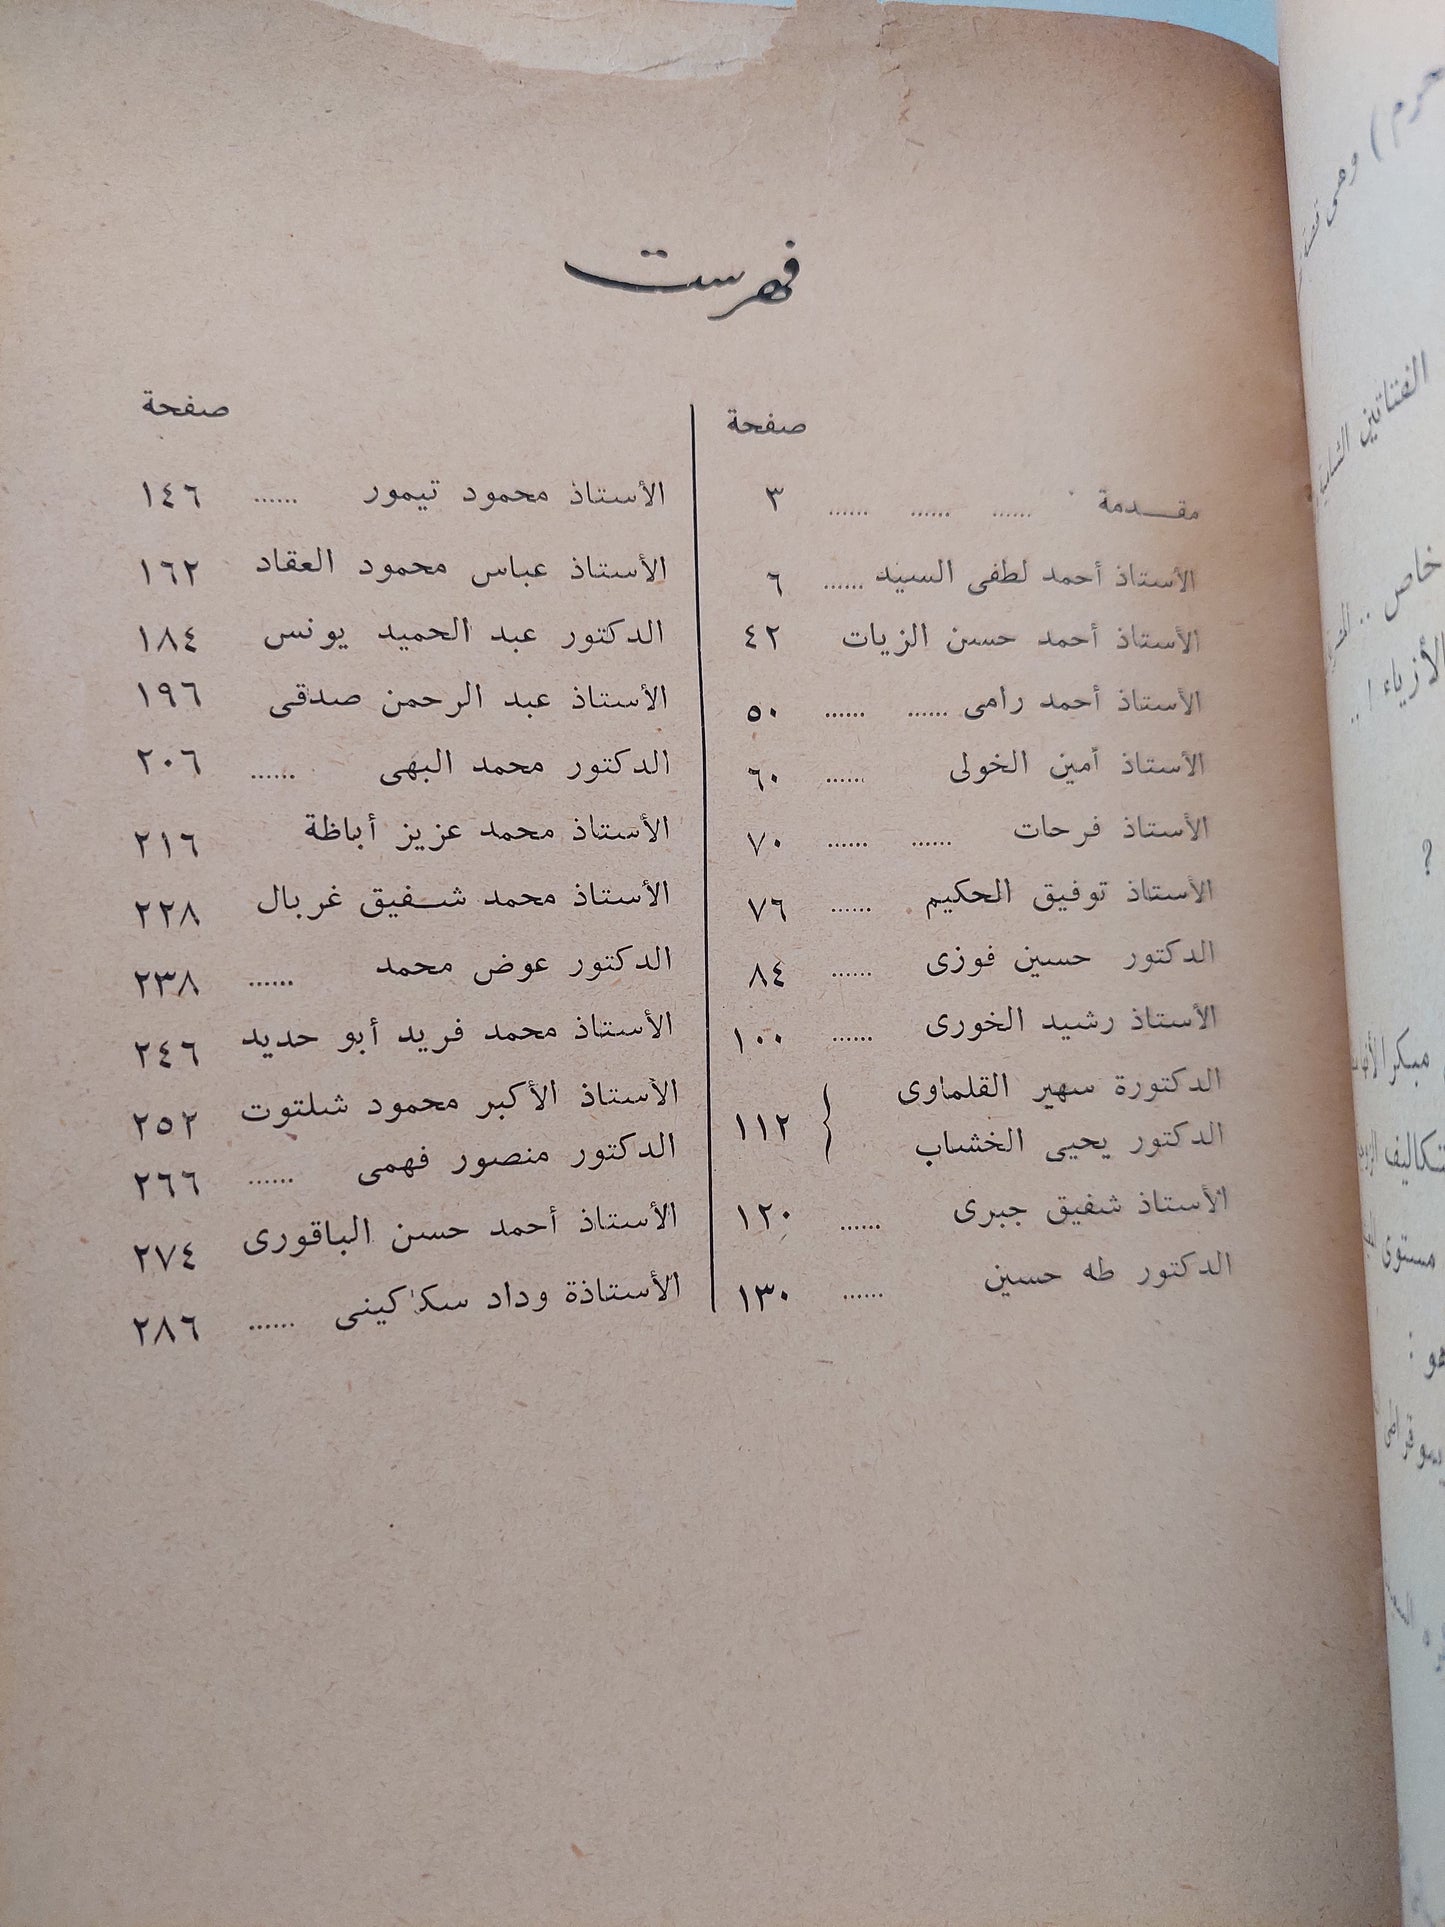 فهرست
صفحة
مقـــدمة ...... ...... ...... ٣
الأستاذ أحمد لطفى السيد ...... ٦
الأستاذ أحمد حسن الزيات ٤٢
الأستاذ أحمد رامى ...... ...... ٥٠
الأستاذ أمين الخولى ...... ٦٠
الأستاذ فرحات ...... ...... ٧٠
الأستاذ توفيق الحكيم ...... ٧٦
الدكتور حسين فوزى ...... ٨٤
الأستاذ رشيد الخورى ...... ١٠٠
الدكتورة سهير القلماوى
الدكتور يحيى الخشاب } ١١٢
الأستاذ شفيق جبرى ...... ١٢٠
الدكتور طه حسين ...... ١٣٠
صفحة
الأستاذ محمود تيمور ...... ١٤٦
الأستاذ عباس محمود العقاد ١٦٢
الدكتور عبد الحميد يونس ١٨٤
الأستاذ عبد الرحمن صدقى ١٩٦
الدكتور محمد البهى ...... ٢٠٦
الأستاذ محمد عزيز أباظة ٢١٦
الأستاذ محمد شـــفيق غربال ٢٢٨
الدكتور عوض محمد ...... ٢٣٨
الأستاذ محمد فريد أبو حديد ٢٤٦
الأستاذ الأكبر محمود شلتوت ٢٥٢
الدكتور منصور فهمى ...... ٢٦٦
الأستاذ أحمد حسن الباقورى ٢٧٤
الأستاذة وداد سكاكينى ...... ٢٨٦
وهى
الفتاتين
خاص ..
الأزياء ! ..
؟
مبكر
مستوى
هو :